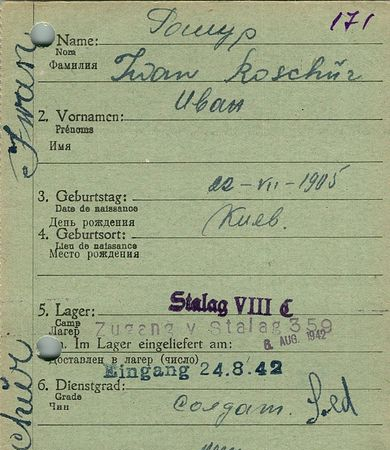 171
Name:
Nom
Фамилия
Iwan Koschür
Иван
2. Vornamen:
Prénoms
Имя
3. Geburtstag:
Date de naissance
День рождения
22-VII-1905
4. Geburtsort:
Lieu de naissance
Место рождения
Киев.
5. Lager:
Camp
Лагерь
Stalag VIII C
Zugang v Stalag 359
Im Lager eingeliefert am:
6. AUG. 1942
Доставлен в лагерь (число)
Eingang 24.8.42
6. Dienstgrad:
Grade
Чин
солдат. Sold
Iwan